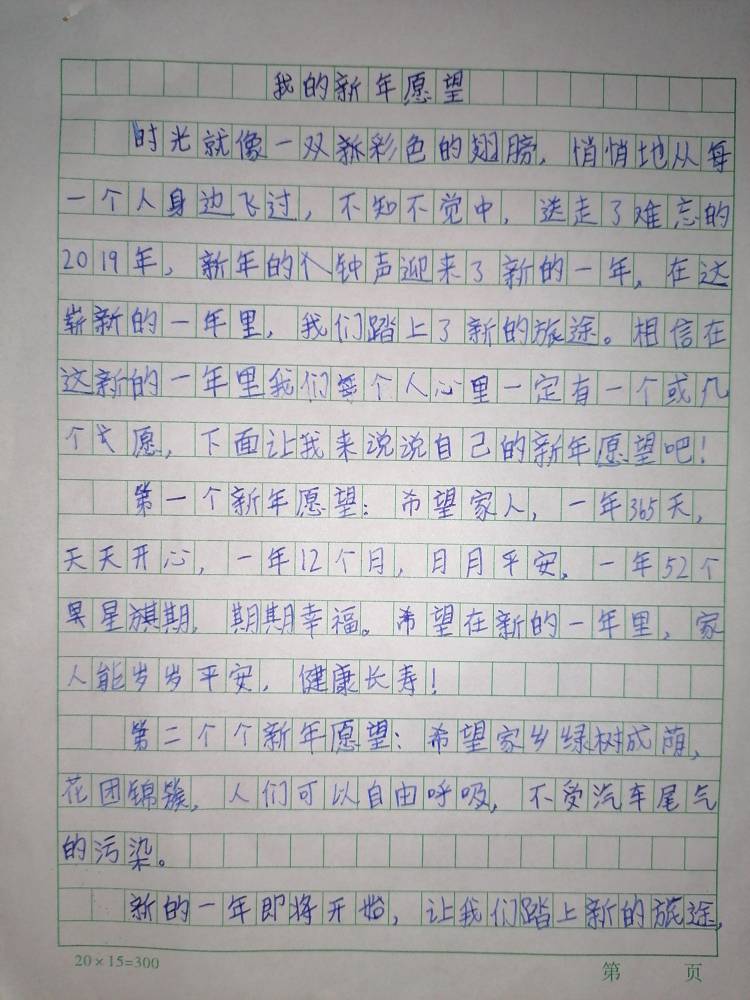 我的新年愿望
时光就像一双新彩色的翅膀，悄悄地从每
一个人身边飞过，不知不觉中，送走了难忘的
2019年，新年的钟声迎来了新的一年，在这
崭新的一年里，我们踏上了新的旅途。相信在
这新的一年里我们每个人心里一定有一个或几
个愿，下面让我来说说自己的新年愿望吧！
第一个新年愿望：希望家人，一年365天，
天天开心，一年12个月，月月平安，一年52个
星期，期期幸福。希望在新的一年里，家
人能岁岁平安，健康长寿！
第二个个新年愿望：希望家乡绿树成荫，
花团锦簇，人们可以自由呼吸，不受汽车尾气
的污染。
新的一年即将开始，让我们踏上新的旅途，
20×15=300
第 页